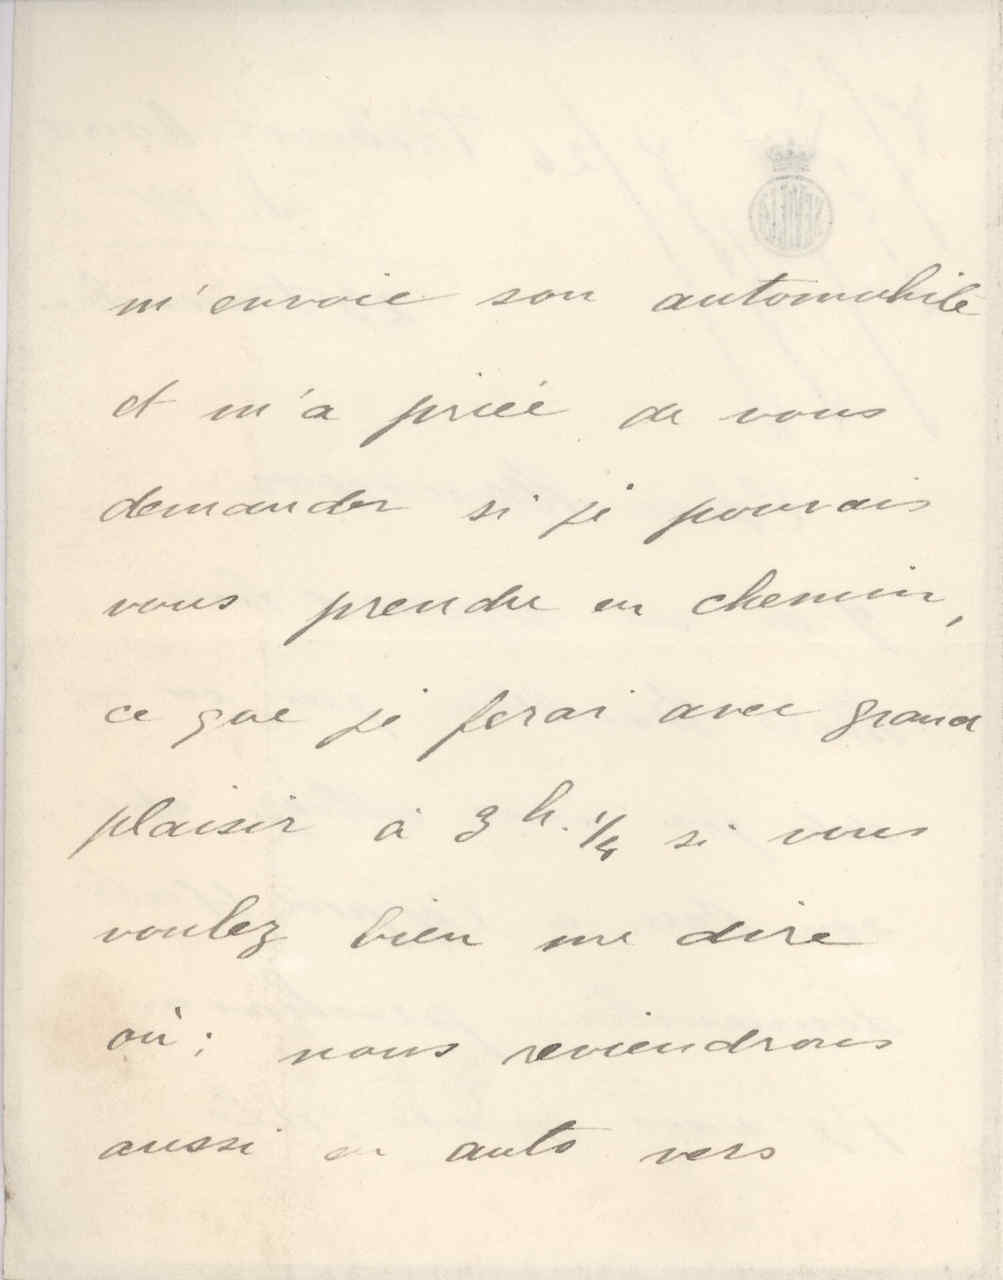 m'envoie son automobile
et m'a priée de vous
demander si je pourrais
vous prendre en chemin,
ce que je ferai avec grand
plaisir à 3 h. 1/4 si vous
voulez bien me dire
où ; nous reviendrons
aussi en auto vers